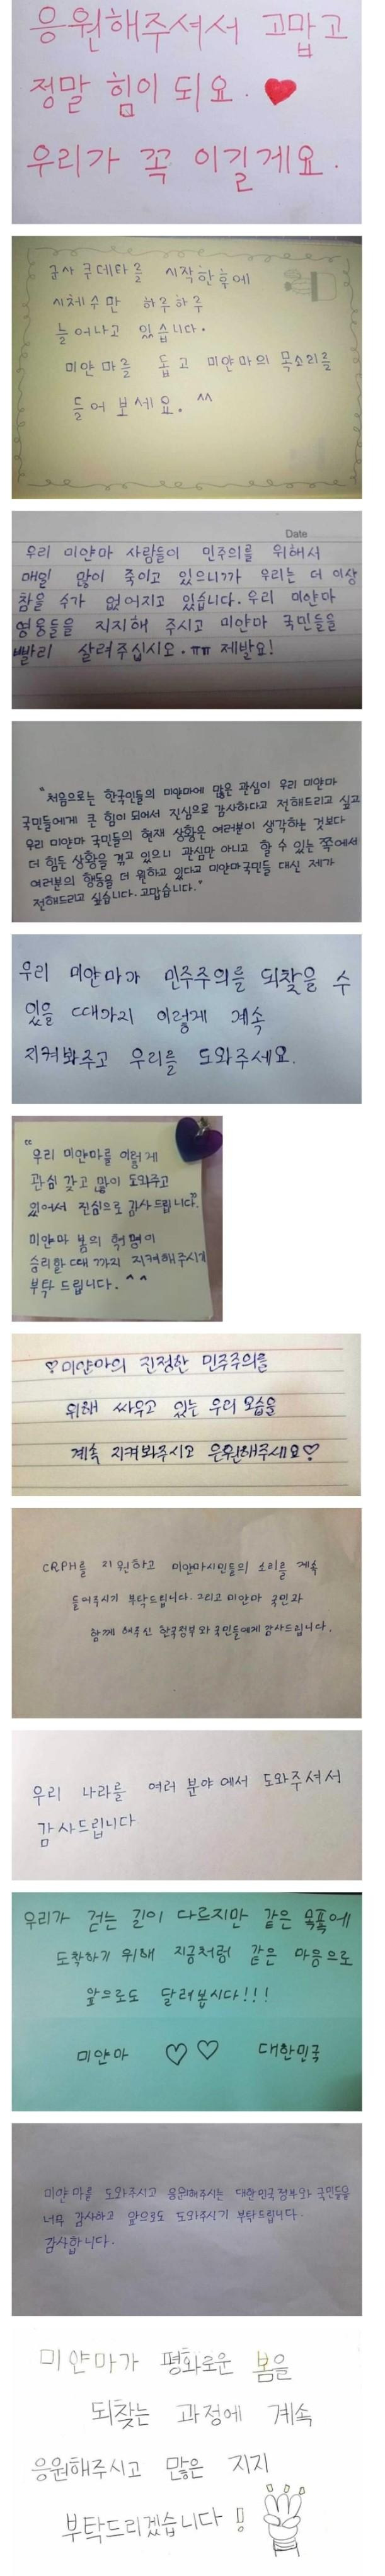 응원해주셔서 고맙고
정말 힘이 되요.
우리가 꼭 이길게요.
군사 쿠데타를 시작한후에
시체수만 하루하루
늘어나고 있습니다.
미얀마를 돕고 미얀마의 목소리를
들어 보세요. ^^
Date
우리 미얀마 사람들이 민주의를 위해서
매일 많이 죽이고 있으니까 우리는 더 이상
참을 수가 없어지고 있습니다. 우리 미얀마
영웅들을 지지해 주시고 미얀마 국민들을
빨리 살려주십시오. ㅠㅠ 제발요!
"처음으로는 한국인들의 미얀마에 많은 관심이 우리 미얀마
국민들에게 큰 힘이 되어서 진심으로 감사하다고 전해드리고 싶고
우리 미얀마 국민들의 현재 상황은 여러분이 생각하는 것보다
더 힘든 상황을 겪고 있으니 관심만 아니고 할 수 있는 쪽에서
여러분의 행동을 더 원하고 있다고 미얀마국민들 대신 제가
전해드리고 싶습니다. 고맙습니다."
우리 미얀마가 민주주의를 되찾을 수
있을 때까지 이렇게 계속
지켜봐주고 우리를 도와주세요.
"우리 미얀마를 이렇게
관심 갖고 많이 도와주고
있어서 진심으로 감사드립니다."
미얀마 봄의 혁명이
승리할 때 까지 지켜해주시게
부탁 드립니다. ^^
♡미얀마의 진정한 민주주의를
위해 싸우고 있는 우리 모습을
계속 지켜봐주시고 응원해주세요♡
CRPH를 지원하고 미얀마시민들의 소리를 계속
들어주시기 부탁드립니다. 그리고 미얀마 국민과
함께 해주신 한국정부와 국민들에게 감사드립니다.
우리 나라를 여러 분야에서 도와주셔서
감사드립니다
우리가 걷는 길이 다르지만 같은 목표에
도착하기 위해 지금처럼 같은 마음으로
앞으로도 달려봅시다!!!
미얀마 ♡♡ 대한민국
미얀마를 도와주시고 응원해주시는 대한민국정부와 국민들을
너무 감사하고 앞으로도 도와주시기 부탁드립니다.
감사합니다.
미얀마가 평화로운 봄을
되찾는 과정에 계속
응원해주시고 많은 지지
부탁드리겠습니다!